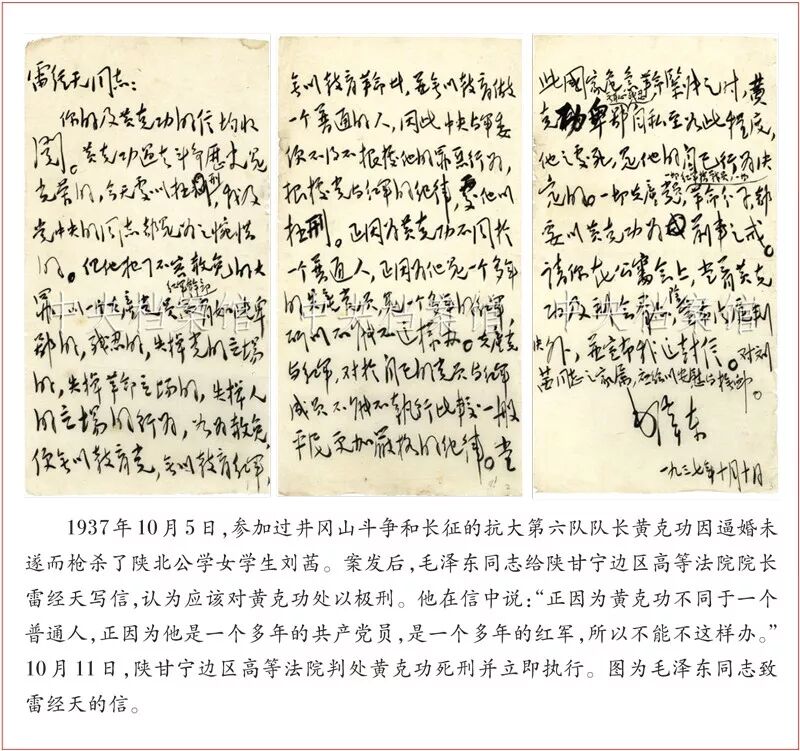 雷经天同志:
你的及黄克功的信均收
阅。黄克功过去斗争历史是
光荣的,今天处以极刑,我及
党中央的同志都是为之惋惜
的。但他犯了不容赦免的大
红军干部
罪,以一个共产党员而有如此卑
鄙的,残忍的,失掉党的立场
的,失掉革命立场的,失掉人
的立场的行为,如为赦免,
便无以教育党,无以教育红军,
无以教育革命者,并无以教育做
一个普通的人,因此中央与军委
便不得不根据他的罪恶行为,
根据党与红军的纪律,处他以
极刑。正因为黄克功不同于
一个普通人,正因为他是一个多年
的共产党员,是一个多年的红军,
所以不能不这样办。共产党
与红军,对于自己的党员与红军
成员不能不执行比较一般
平民更加严格的纪律。当
此国家危急革命紧张之时,黄
无耻残忍
克功卑鄙自私至如此程度,
他之处死,是他的自己行为决
一切红军指战员,一切
定的。一切共产党员,革命分子,都
要以黄克功为前车之戒。
请你在公审会上,当着黄克
功及到会群众,除宣布法庭判
决外,并宣布我这封信。对刘
茜同志之家属,应给以安慰与抚恤。
毛泽东
一九三七年十月十日
中央档案馆 中央档案馆 中央档案馆
1937年10月5日,参加过井冈山斗争和长征的抗大第六队队长黄克功因逼婚未
遂而枪杀了陕北公学女学生刘茜。案发后,毛泽东同志给陕甘宁边区高等法院院长
雷经天写信,认为应该对黄克功处以极刑。他在信中说:“正因为黄克功不同于一个
普通人,正因为他是一个多年的共产党员,是一个多年的红军,所以不能不这样办。”
10月11日,陕甘宁边区高等法院判处黄克功死刑并立即执行。图为毛泽东同志致
雷经天的信。